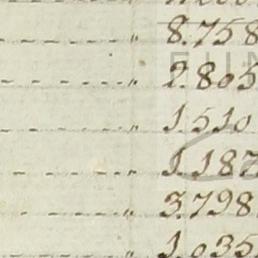 8.758
2.805
1.510
1.187
3.798
1.035